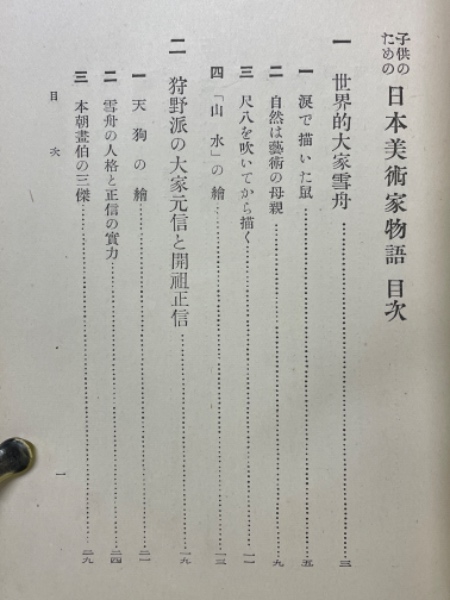 子供の
ための 日本美術家物語 目次
一 世界的大家雪舟……三
一 涙で描いた鼠……五
二 自然は藝術の母親……九
三 尺八を吹いてから描く……一一
四 「山水」の繪……一三
二 狩野派の大家元信と開祖正信……一九
一 天狗の繪……二一
二 雪舟の人格と正信の實力……二四
三 本朝畫伯の三傑……二九
目次 一